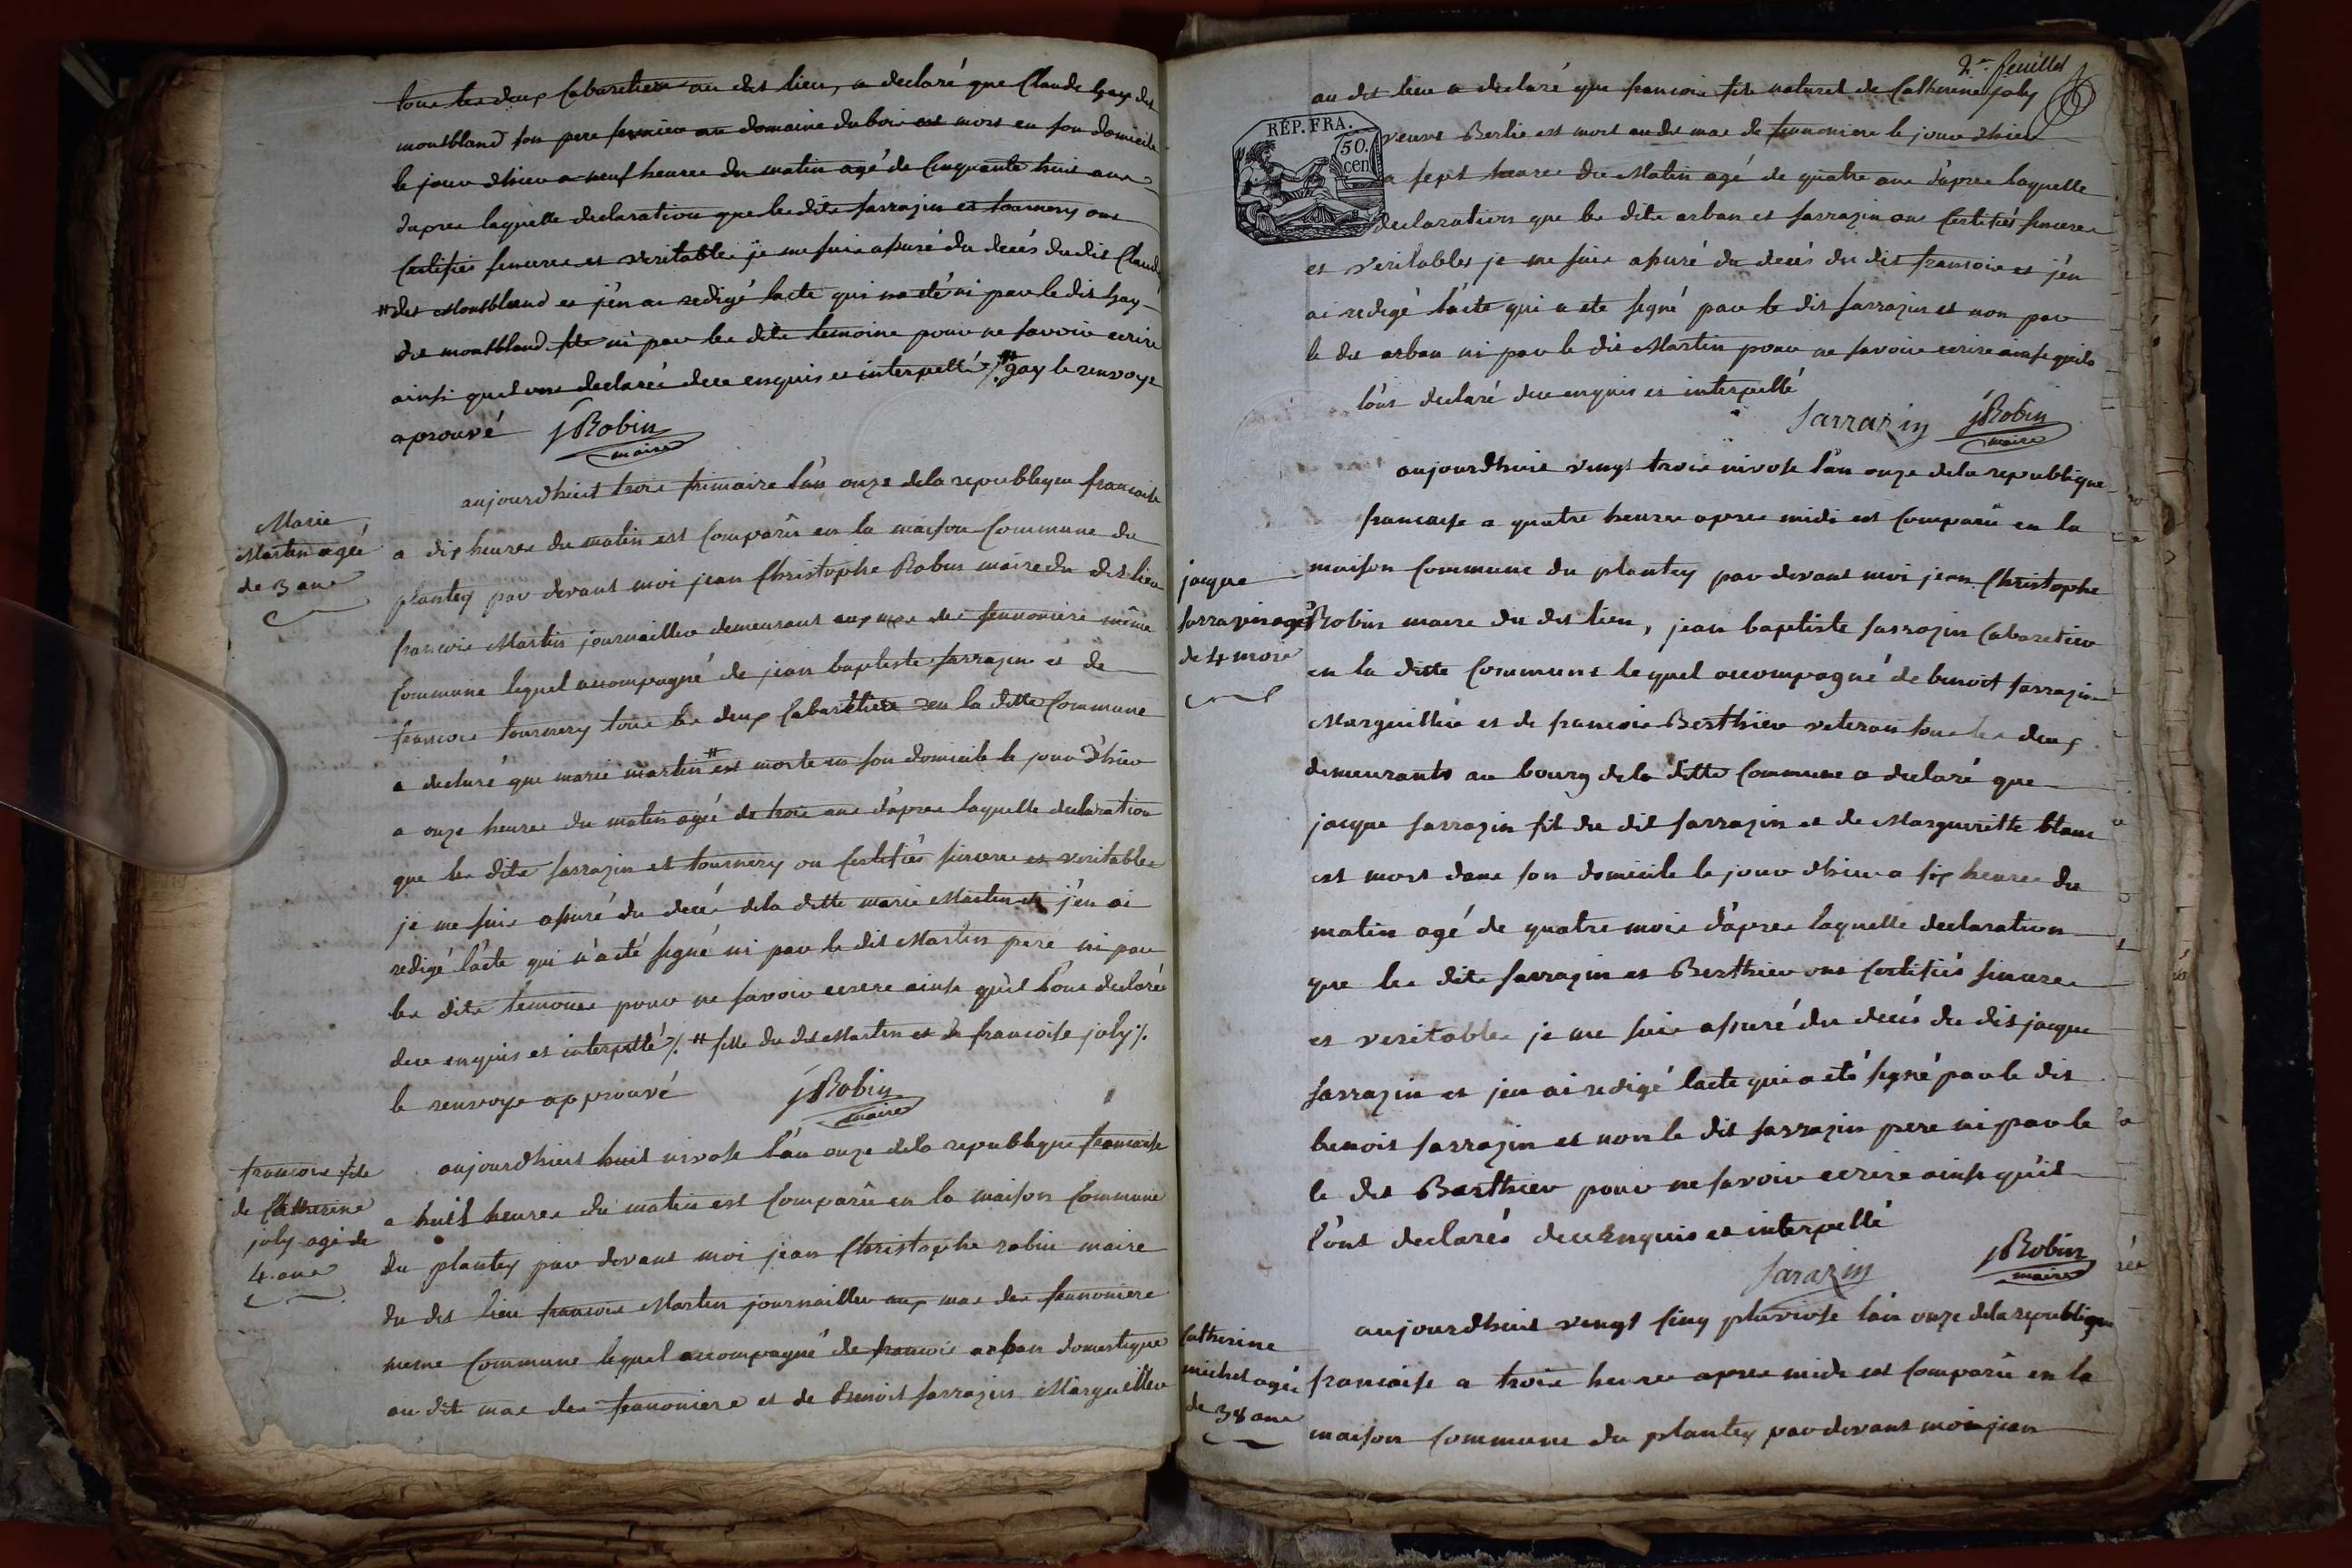 tous les deux Cabaretiers au dit lieu, a declaré que Claude gay dit
montbland son pere fermier au domaine du bois est mort en son domicile
le jour dhier a neuf heures du matin agé de Cinquante huit ans
dapres laquelle declaration que les dits sarrazin et tournery ont
Certifiés sinceres et veritables je me suis assuré du decés du dit Claude
# dit Montbland et j'én ai redigé lacte qui na eté ni par le dit gay
dit montbland fils ni par les dits temoins pour ne savoir ecrire
ainsi quil ont declarés de ce enquis et interpellé ./. # gay le renvoye
aprouvé JRobin
maire
aujourdhuit trois frimaire l'án onze dela republique francoise
Marie
Martin agée
de 3 ans
a dix heures du matin est Comparû en la maison Commune du
plantey par devant moi jean Christophe Robin maire du dit lieu
francois Martin journaillier demeurant aux mas des fennoniere même
Commune lequel accompagné de jean baptiste sarrazin et de
francois tournery tous les deux Cabaretiers en la ditte Commune
a declaré que marie martin # est morte en son domicile le jour d'hier
a onze heures du matin agée de trois ans d'ápres laquelle declaration
que les dits sarrazin et tournery on Certifiés sinceres et veritables
je me suis assuré du decés dela ditte marie Martin et j'én ai
redigé l'ácte qui n'á eté signé ni par le dit Martin pere ni par
les dits temoins pour ne savoir ecrire ainsi qu'il l'ont declarés
de ce enquis et interpellé ./. # fille du dit Martin et de francoise joly ./.
le renvoye approuvé JRobin
maire
francois fils
de Catherine
joly agé de
4 ans
aujourdhuit huit nivose l'án onze dela republique francoise
a huit heures du matin est Comparû en la maison Commune
du plantey par devant moi jean Christophe robin maire
du dit lieu francois Martin journaillier aux mas des fennoniere
meme Commune lequel accompagné de francois arban domestique
au dit mas des fennoniere et de Benoit sarrazin Marguillier
2e. feuillet
au dit lieu a declaré que francois fils naturel de Catherine joly
REP. FRA.
50.
cen
veuve Berlie est mort au dit mas de fennoniere le jour dhier
a sept heures du Matin agé de quatre ans d'ápres laquelle
declaration que les dits arban et sarrazin ont Certifiés sinceres
et veritables je me suis assuré du decés du dit francois et j'én
ai redigé l'ácte qui a eté signé par le dit sarrazin et non par
le dit arban ni par le dit Martin pour ne savoir ecrire ainsi quils
l'ónt declaré de ce enquis et interpellé
Sarrazin JRobin
maire
aujourdhuit vingt trois nivose l'án onze dela republique
francaise a quatre heures apres midi est Comparû en la
jacque
sarrazin agé
de 4 mois
maison Commune du plantey par devant moi jean Christophe
Robin maire du dit lieu, jean baptiste sarrazin Cabaretier
en la ditte Commune lequel accompagné de benoit sarrazin
Marguillier et de francois Berthier veteran tous les deux
demeurants au bourg dela ditte Commune a declaré que
jacque sarrazin fil du dit sarrazin et de Margueritte blanc
est mort dans son domicile le jour dhier a six heures du
matin agé de quatre mois d'ápres laquelle declaration
que les dits sarrazin et Berthier ont Certifiés sinceres
et veritables je me suis assuré du decés du dit jacque
sarrazin et jen ai redigé lacte qui a eté signé par le dit
benoit sarrazin et non le dit sarrazin pere ni par le
le dit Berthier pour ne savoir ecrire ainsi qu'il
l'ónt declarés de ce enquis et interpellé
Sarazin JRobin
maire
Catherine
michel agée
de 38 ans
aujourdhuit vingt Cinq pluviose l'án onze dela republique
francaise a trois heures apres midi est Comparû en la
maison Commune du plantey par devant moi jean